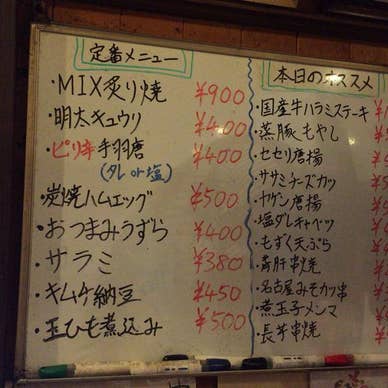 定番メニュー
・MIX炙り焼 ¥900
・明太キュウリ ¥400
・ピリ辛手羽唐 ¥400
(タレor塩)
・炭焼ハムエッグ ¥500
・おつまみうずら ¥400
・サラミ ¥380
・キムケ納豆 ¥450
・玉ひも煮込み ¥500
本日のオススメ
・国産牛ハラミステーキ
・蒸豚もやし
・セセリ唐揚
・ササミチーズカツ
・ヤゲン唐揚
・塩ダレキャベツ
・もずく天ぷら
・青肝串焼
・名古屋みそカツ串
・煮玉子メンマ
・長芋串焼